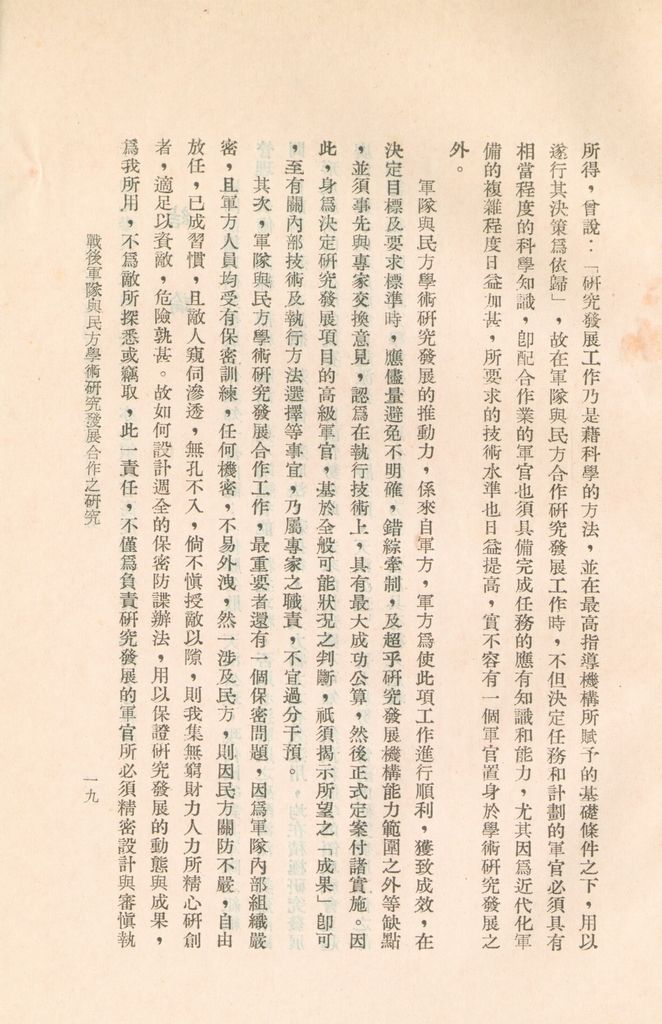 所得，曾說：「研究發展工作乃是藉科學的方法，並在最高指導機構所賦予的基礎條件之下，用以
遂行其決策爲依歸」，故在軍隊與民方合作研究發展工作時，不但決定任務和計劃的軍官必須具有
相當程度的科學知識，卽配合作業的軍官也須具備完成任務的應有知識和能力，尤其因爲近代化軍
備的複雜程度日益加甚，所要求的技術水準也日益提高，實不容有一個軍官置身於學術研究發展之
外。
軍隊與民方學術研究發展的推動力，係來自軍方，軍方爲使此項工作進行順利，獲致成效，在
決定目標及要求標準時，應儘量避免不明確，錯綜牽制，及超乎研究發展機構能力範圍之外等缺點
，並須事先與專家交換意見，認爲在執行技術上，具有最大成功公算，然後正式定案付諸實施。因
此，身爲決定研究發展項目的高級軍官，基於全般可能狀況之判斷，祇須揭示所望之「成果」卽可
，至有關內部技術及執行方法選擇等事宜，乃屬專家之職責，不宜過分干預。
其次，軍隊與民方學術研究發展合作工作，最重要者還有一個保密問題，因爲軍隊內部組織嚴
密，且軍方人員均受有保密訓練，任何機密，不易外洩，然一涉及民方，則因民方關防不嚴，自由
放任，已成習慣，且敵人窺伺滲透，無孔不入，倘不愼授敵以隙，則我集無窮財力人力所精心研創
者，適足以資敵，危險孰甚。故如何設計週全的保密防諜辦法，用以保證研究發展的動態與成果，
爲我所用，不爲敵所探悉或竊取，此一責任，不僅爲負責研究發展的軍官所必須精密設計與審愼執
戰後軍隊與民方學術研究發展合作之研究
一九